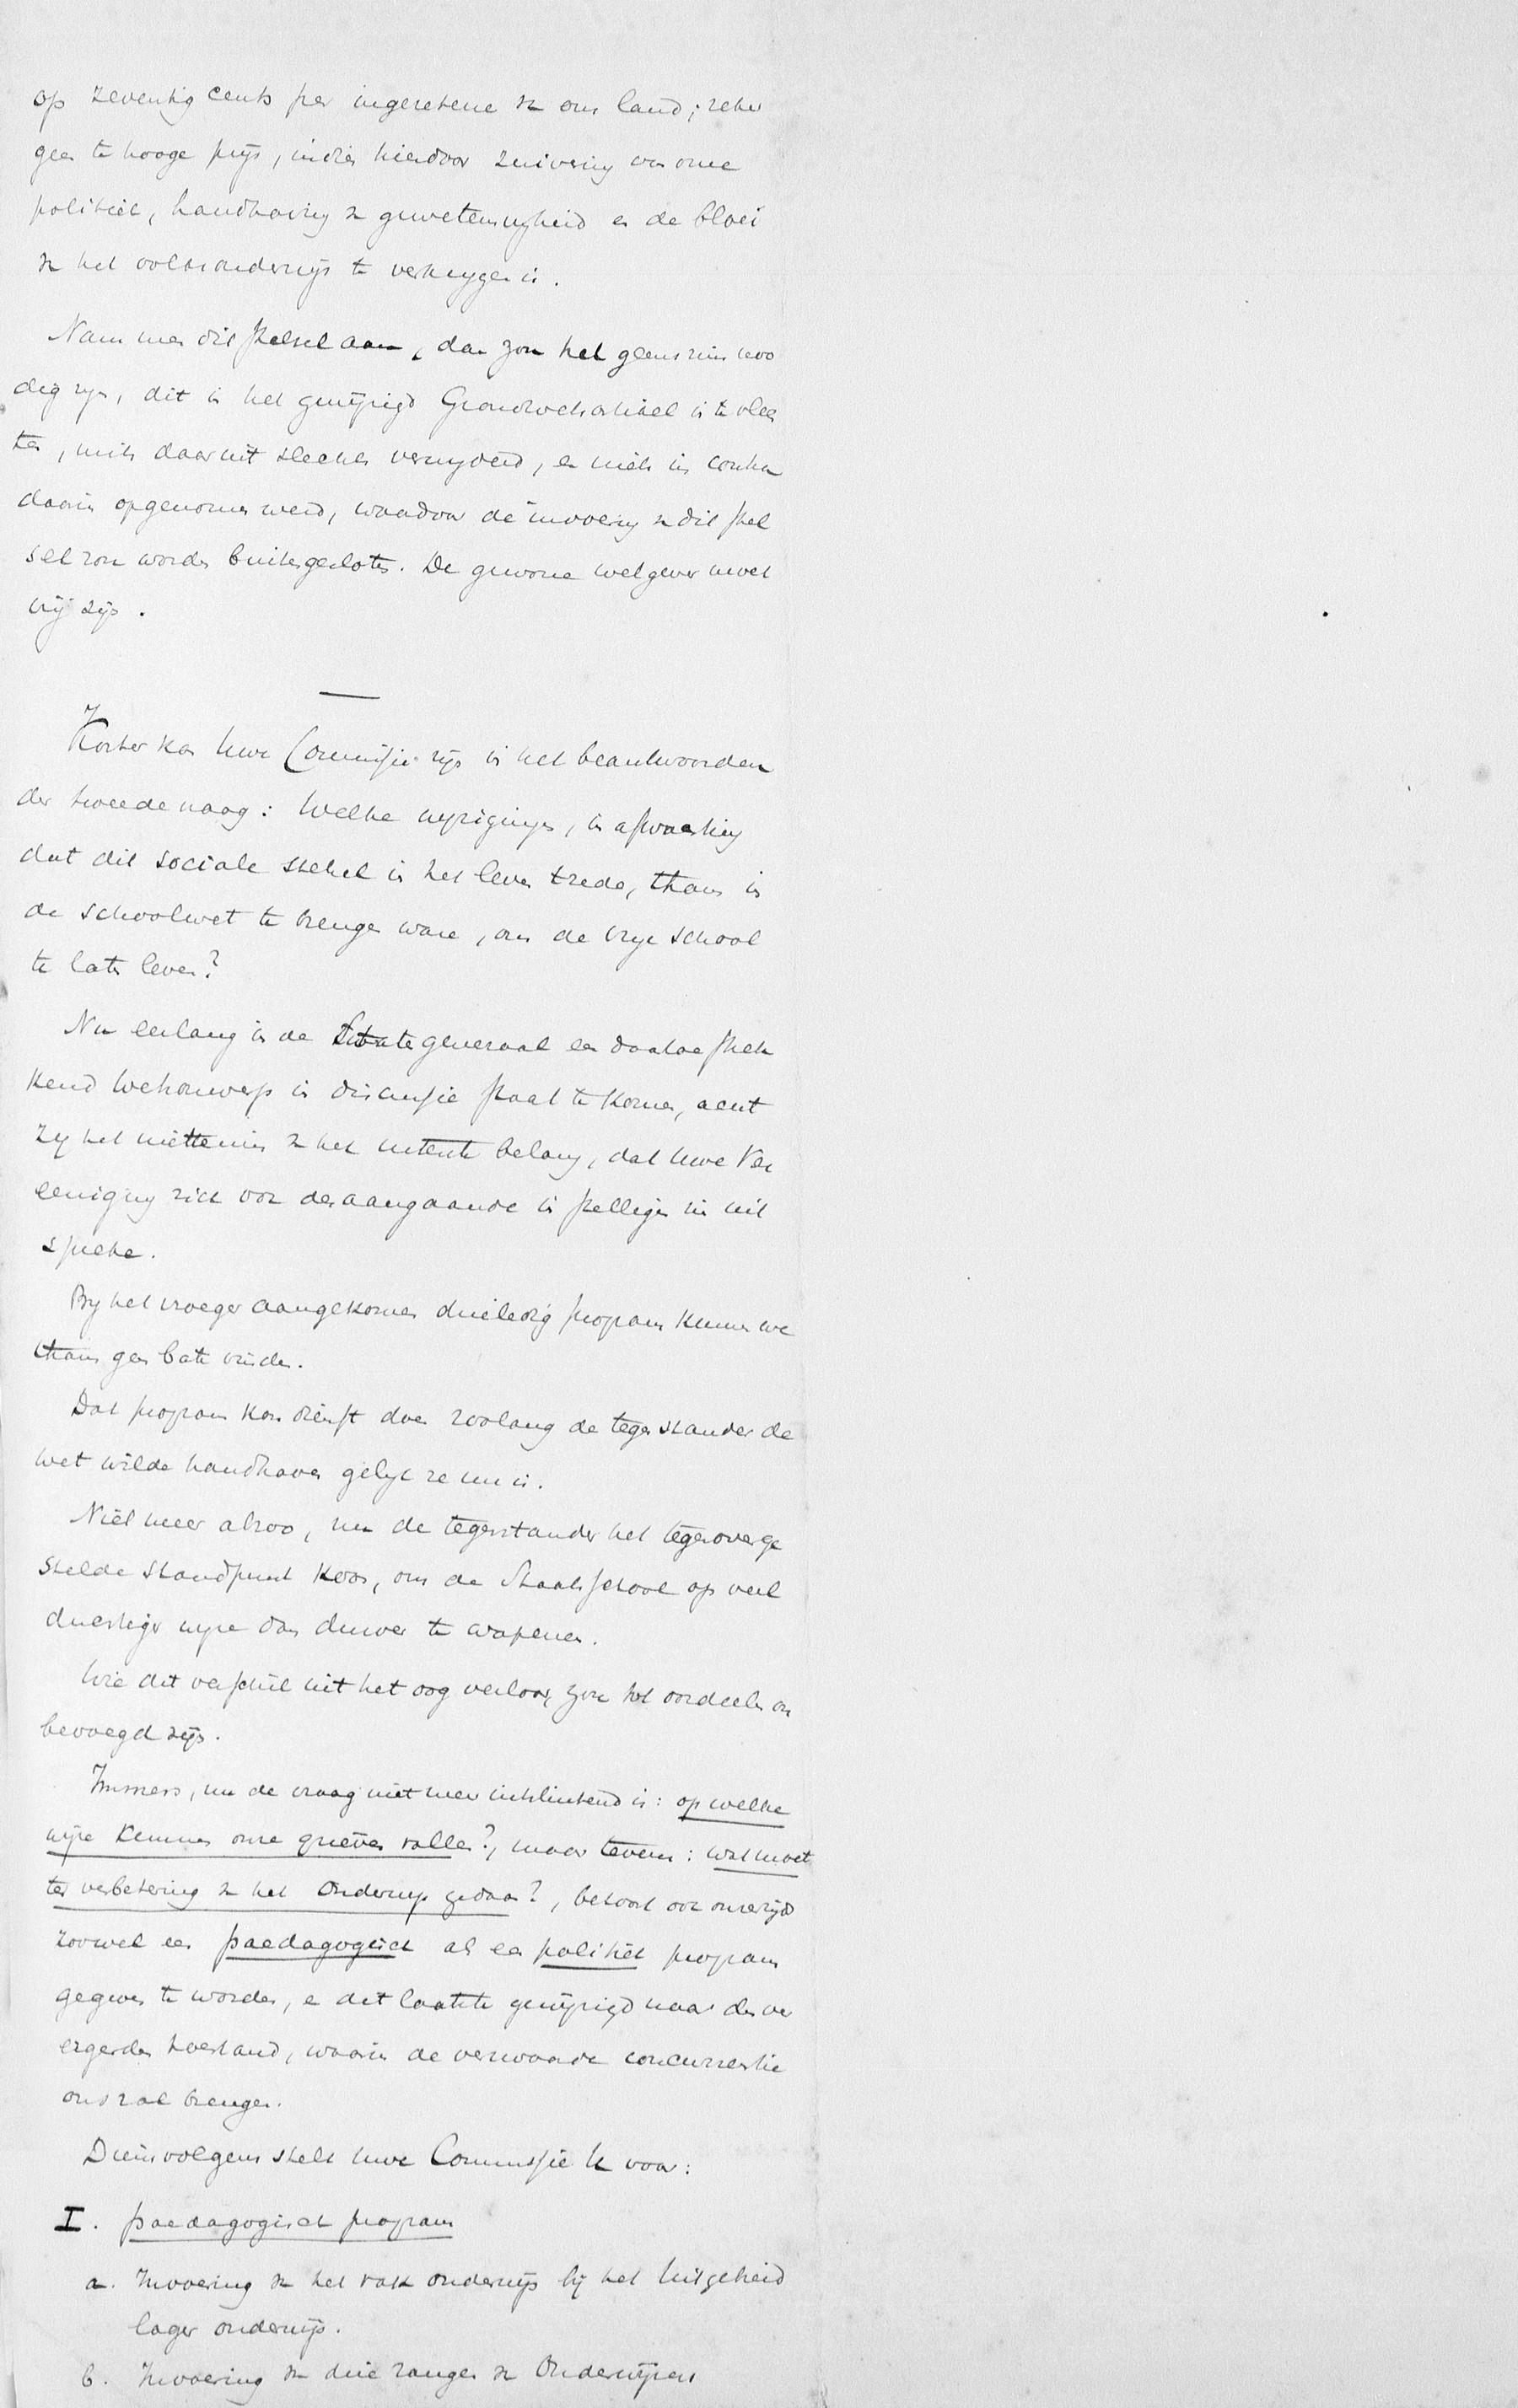 op zeventig cents per ingezetene v ons land; zeker
geen te hooge prijs, indien hierdoor zuivering van onze
politiek, handhaving v gewetensvrijheid en de bloei
v het volksonderwijs te verkrijgen is.
Nam men dit stelsel aan, dan zou het geenszins noo
dig zijn, dit in het gewijzigd Grondwetsartikel in te vlech
ten, mits daaruit slechts verwijderd, en niets in contra
daarin opgenomen werd, waardoor de invoering v dit stel
sel zou worden buitengesloten. De gewone wetgever moet
vrij zijn.
Korter kan Uwe Commissie zijn in het beantwoorden
der tweede vraag: Welke wijzigingen, in afwachting
dat dit sociale stelsel in het leven trede, thans in
de schoolwet te brengen ware, om de vrije school
te laten leven?
Nu eerlang in de Staten generaal een daartoe strek
kend wetsontwerp in discussie staat te komen, acht
zy het niettemin v het uiterste belang, dat Uwe Ver
eeniging zich ook desaangaande in stelligen zin uit
spreke.
By het vroeger aangekomen drieledig program kunnen we
thans geen bate vinden.
Dat program kon dienst doen zoolang de tegenstander de
wet wilde handhaven gelijk ze nu is.
Niet meer alzoo, nu de tegenstander het tegenoverge
stelde standpunt koos, om de Staatsschool op veel
duchtiger wijze dan dusver te wapenen.
Wie dit verschil uit het oog verloor, zou tot oordeelen on
bevoegd zijn.
Immers, nu de vraag niet meer uitsluitend is: op welke
wijze kunnen onze grieven vallen?, maar tevens: wat moet
ter verbetering v het Onderwijs gedaan?, behoort ook onzerzijds
zoowel een paedagogisch als een politiek program
gegeven te worden, en dit laatste gewijzigd naar den ver
ergerden toestand, waarin de verzwaarde concurrentie
ons zal brengen.
Dienvolgens stelt Uwe Commissie U voor:
I. paedagogisch program
a. Invoering v het vak onderwijs bij het Uitgebreid
lager onderwijs.
b. Invoering v drie rangen v Onderwijzers